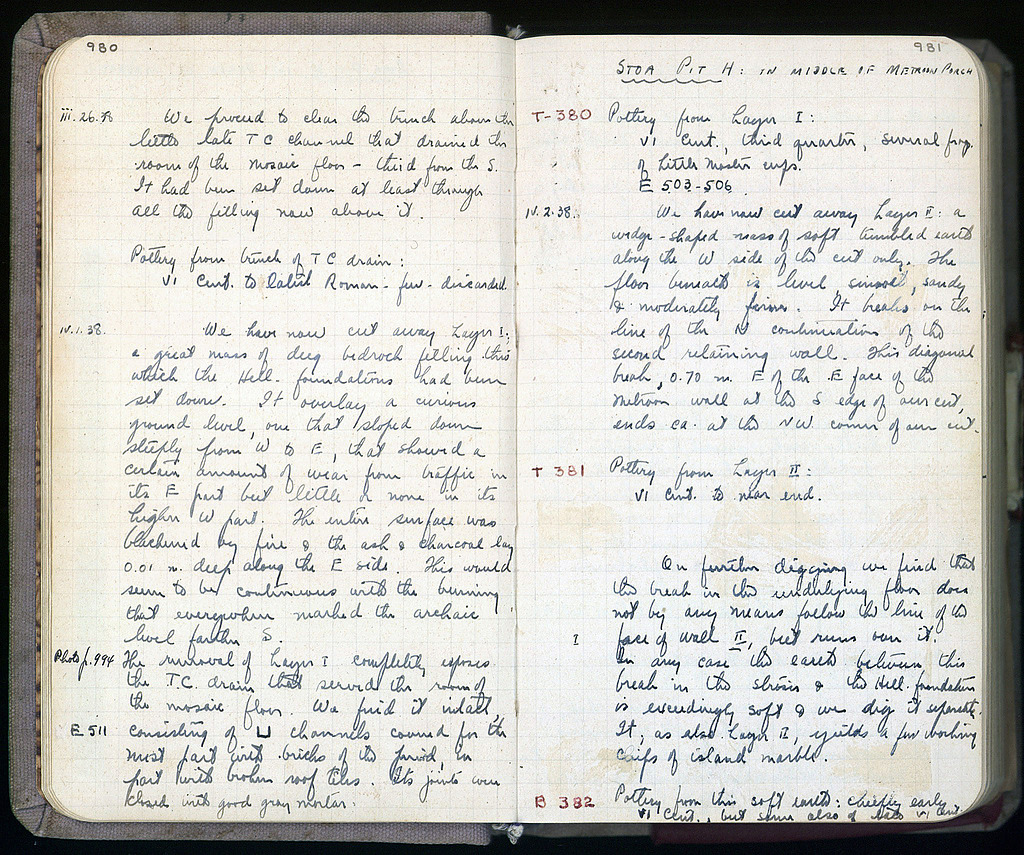 980
iii.26.38 We proceed to clear the trench above the
little late TC channel that drained the
room of the mosaic floor - third from the S.
It had been set down at least through
all the filling now above it.
Pottery from trench of TC drain:
VI cent. to latest Roman - few - discarded
IV.1.38. We have now cut away Layer I:
a great mass of deep bedrock filling thru
which the Hell. foundations had been
set down. It overlay a curious
ground level, one that sloped down
steeply from W to E, that showed a
certain amount of wear from traffic in
its E part but little or none in its
higher W part. The entire surface was
blackened by fire & the ash & charcoal lay
0.01 m. deep along the E side. This would
seem to be continuous with the burning
that everywhere marked the archaic
level farther S.
Photo p.994 The removal of Layer I completely exposes
the T.C. drain that served the room of
the mosaic floor. We find it intact,
E 511 consisting of ⊔ channels covered for the
most part with bricks of the period, in
part with broken roof tiles. Its joints were
closed with good gray mortar.
981
STOA PIT H: IN MIDDLE OF METROON PORCH
T-380 Pottery from Layer I:
VI cent., third quarter, several frag.
of little master cups.
E 503-506
IV.2.38. We have now cut away Layer II: a
wedge-shaped mass of soft tumbled earth
along the W side of the cut only. The
floor beneath is level, smooth, sandy
& moderately firm. It breaks on the
line of the N continuation of the
second retaining wall. This diagonal
break, 0.70 m. E of the E face of the
Metroon wall at the S edge of our cut,
ends ca. at the NW corner of our cut.
T 381 Pottery from Layer II:
VI cent. to near end.
On further digging we find that
the break in the underlying floor does
not by any means follow the line of the
I face of wall II, but runs over it.
In any case the earth between this
break in the strosis & the Hell. foundation
is exceedingly soft & we dig it separately.
It, as also Layer II, yields a few working
chips of island marble.
B 382 Pottery from this soft earth: chiefly early
VI cent., but some also of late VI cent.